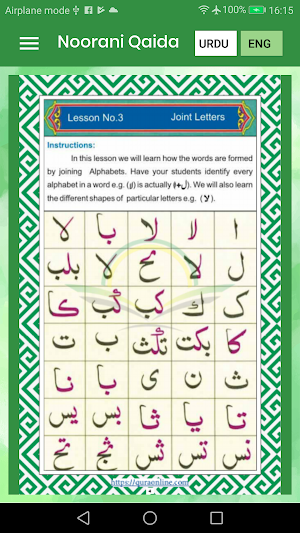 Airplane mode 100% 16:15
Noorani Qaida URDU ENG
Lesson No.3 Joint Letters
Instructions:
In this lesson we will learn how the words are formed
by joining Alphabets. Have your students identify every
alphabet in a word e.g. (لا) is actually (ل+ا). We will also learn
the different shapes of particular letters e.g. (لا).
ا لا لا با لا
ل لا مح لا بلب
ک ك كب كب كا
كا بكت تكث ب ت
ث ن ى با نا
تا يا ثا بس يس
نس تس ثس ثج تح
https://quraonline.com